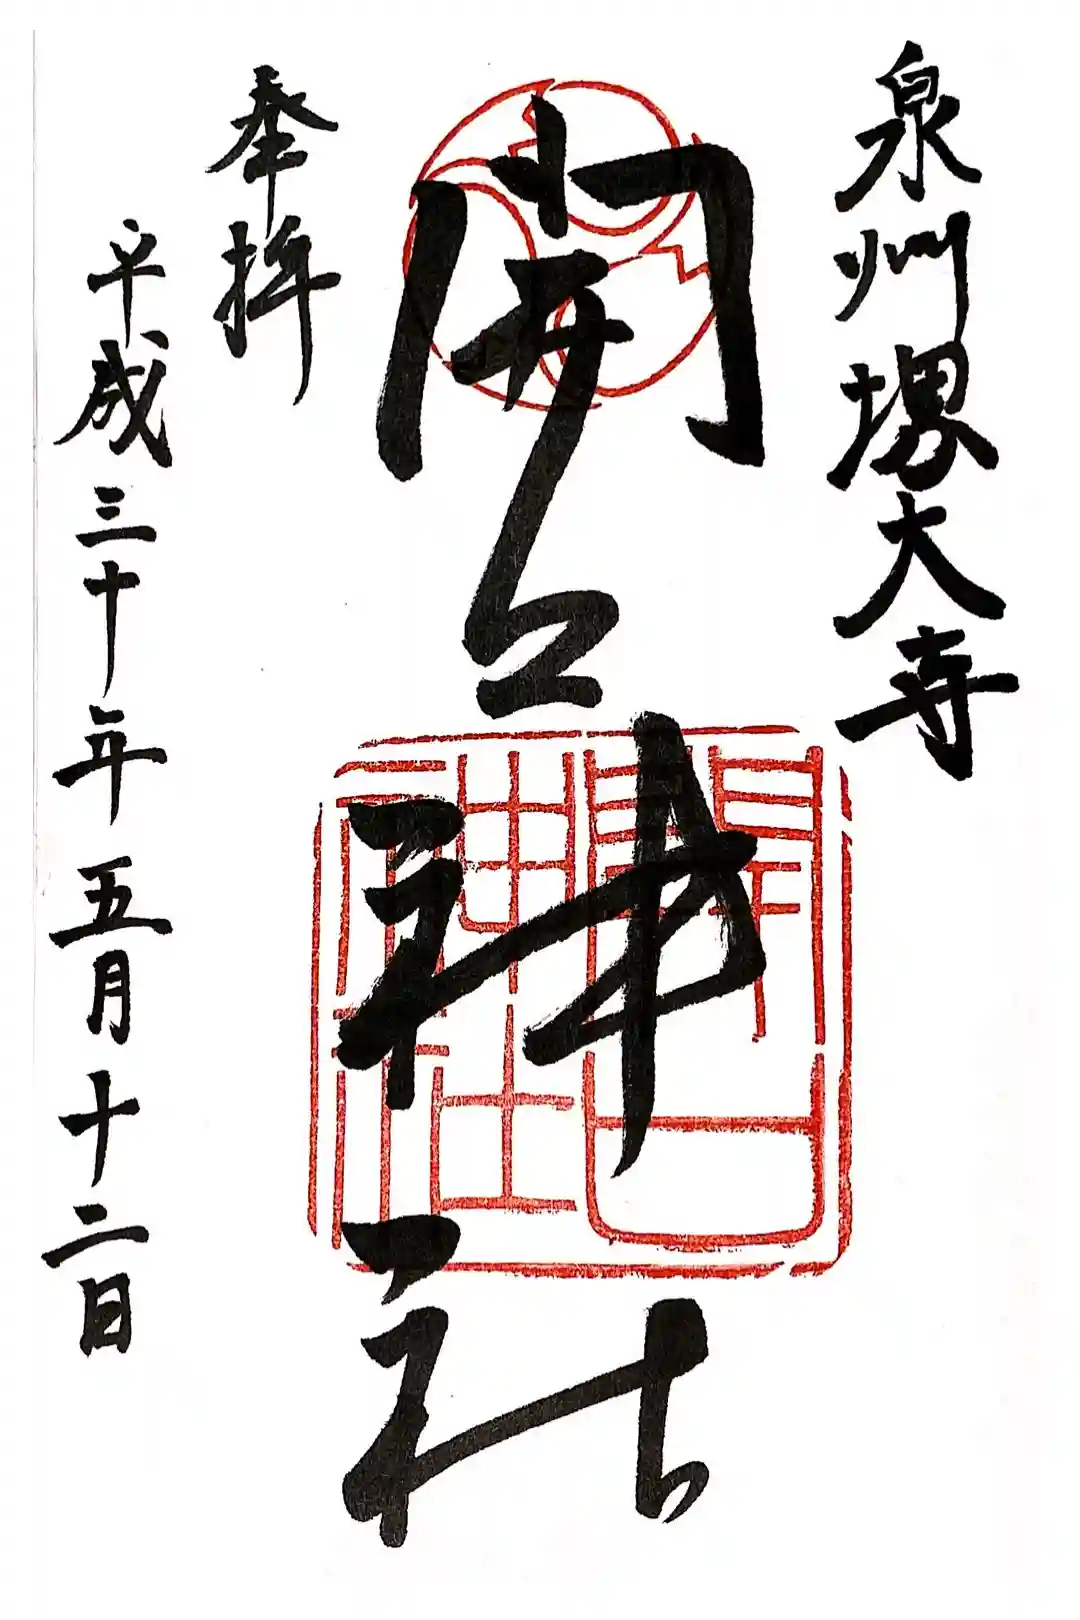 泉州堺大寺
開口神社
開口神社
奉拝
平成三十年五月十二日